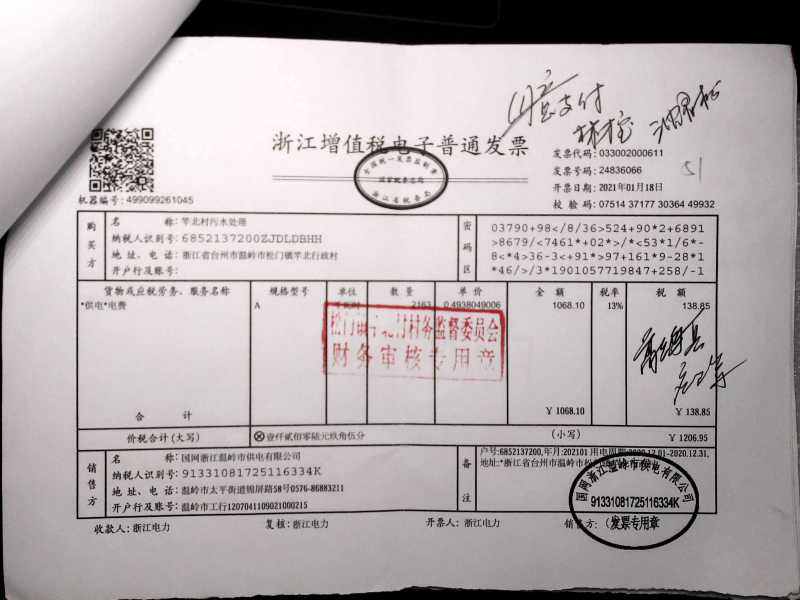 支付
浙江增值税电子普通发票
全国统一发票监制章
国家税务总局
浙江省税务局
发票代码: 033002000611
发票号码: 24836066
51
开票日期: 2021年01月18日
机器编号: 499099261045
校验码: 07514 37177 30364 49932
购买方
名称: 竿北村污水处理
纳税人识别号: 6852137200ZJDLDBHH
地址、电话: 浙江省台州市温岭市松门镇竿北行政村
开户行及账号:
密码区
03790+98</8/36>524+90*2+6891
>8679/<7461*+02*>/*<53*1/6*-
8<*4>36-3<+91*>97+161*9-28*1
*46/>/3*1901057719847+258/-1
货物或应税劳务、服务名称 规格型号 单位 数量 单价 金额 税率 税额
*供电*电费 A 千瓦时 2163 0.4938049006 1068.10 13% 138.85
村务监督委员会
财务审核专用章
合计 ¥1068.10 ¥138.85
价税合计(大写) ⊗壹仟贰佰零陆元玖角伍分 (小写) ¥1206.95
销售方
名称: 国网浙江温岭市供电有限公司
纳税人识别号: 91331081725116334K
地址、电话: 温岭市太平街道锦屏路58号0576-86883211
开户行及账号: 温岭市工行1207041109021000215
备注
户号:6852137200,年月:202101 用电周期:2020.12.01-2020.12.31,
地址:*浙江省台州市温岭市松
国网浙江温岭市供电有限公司
91331081725116334K
发票专用章
收款人: 浙江电力 复核: 浙江电力 开票人: 浙江电力 销售方:(章)